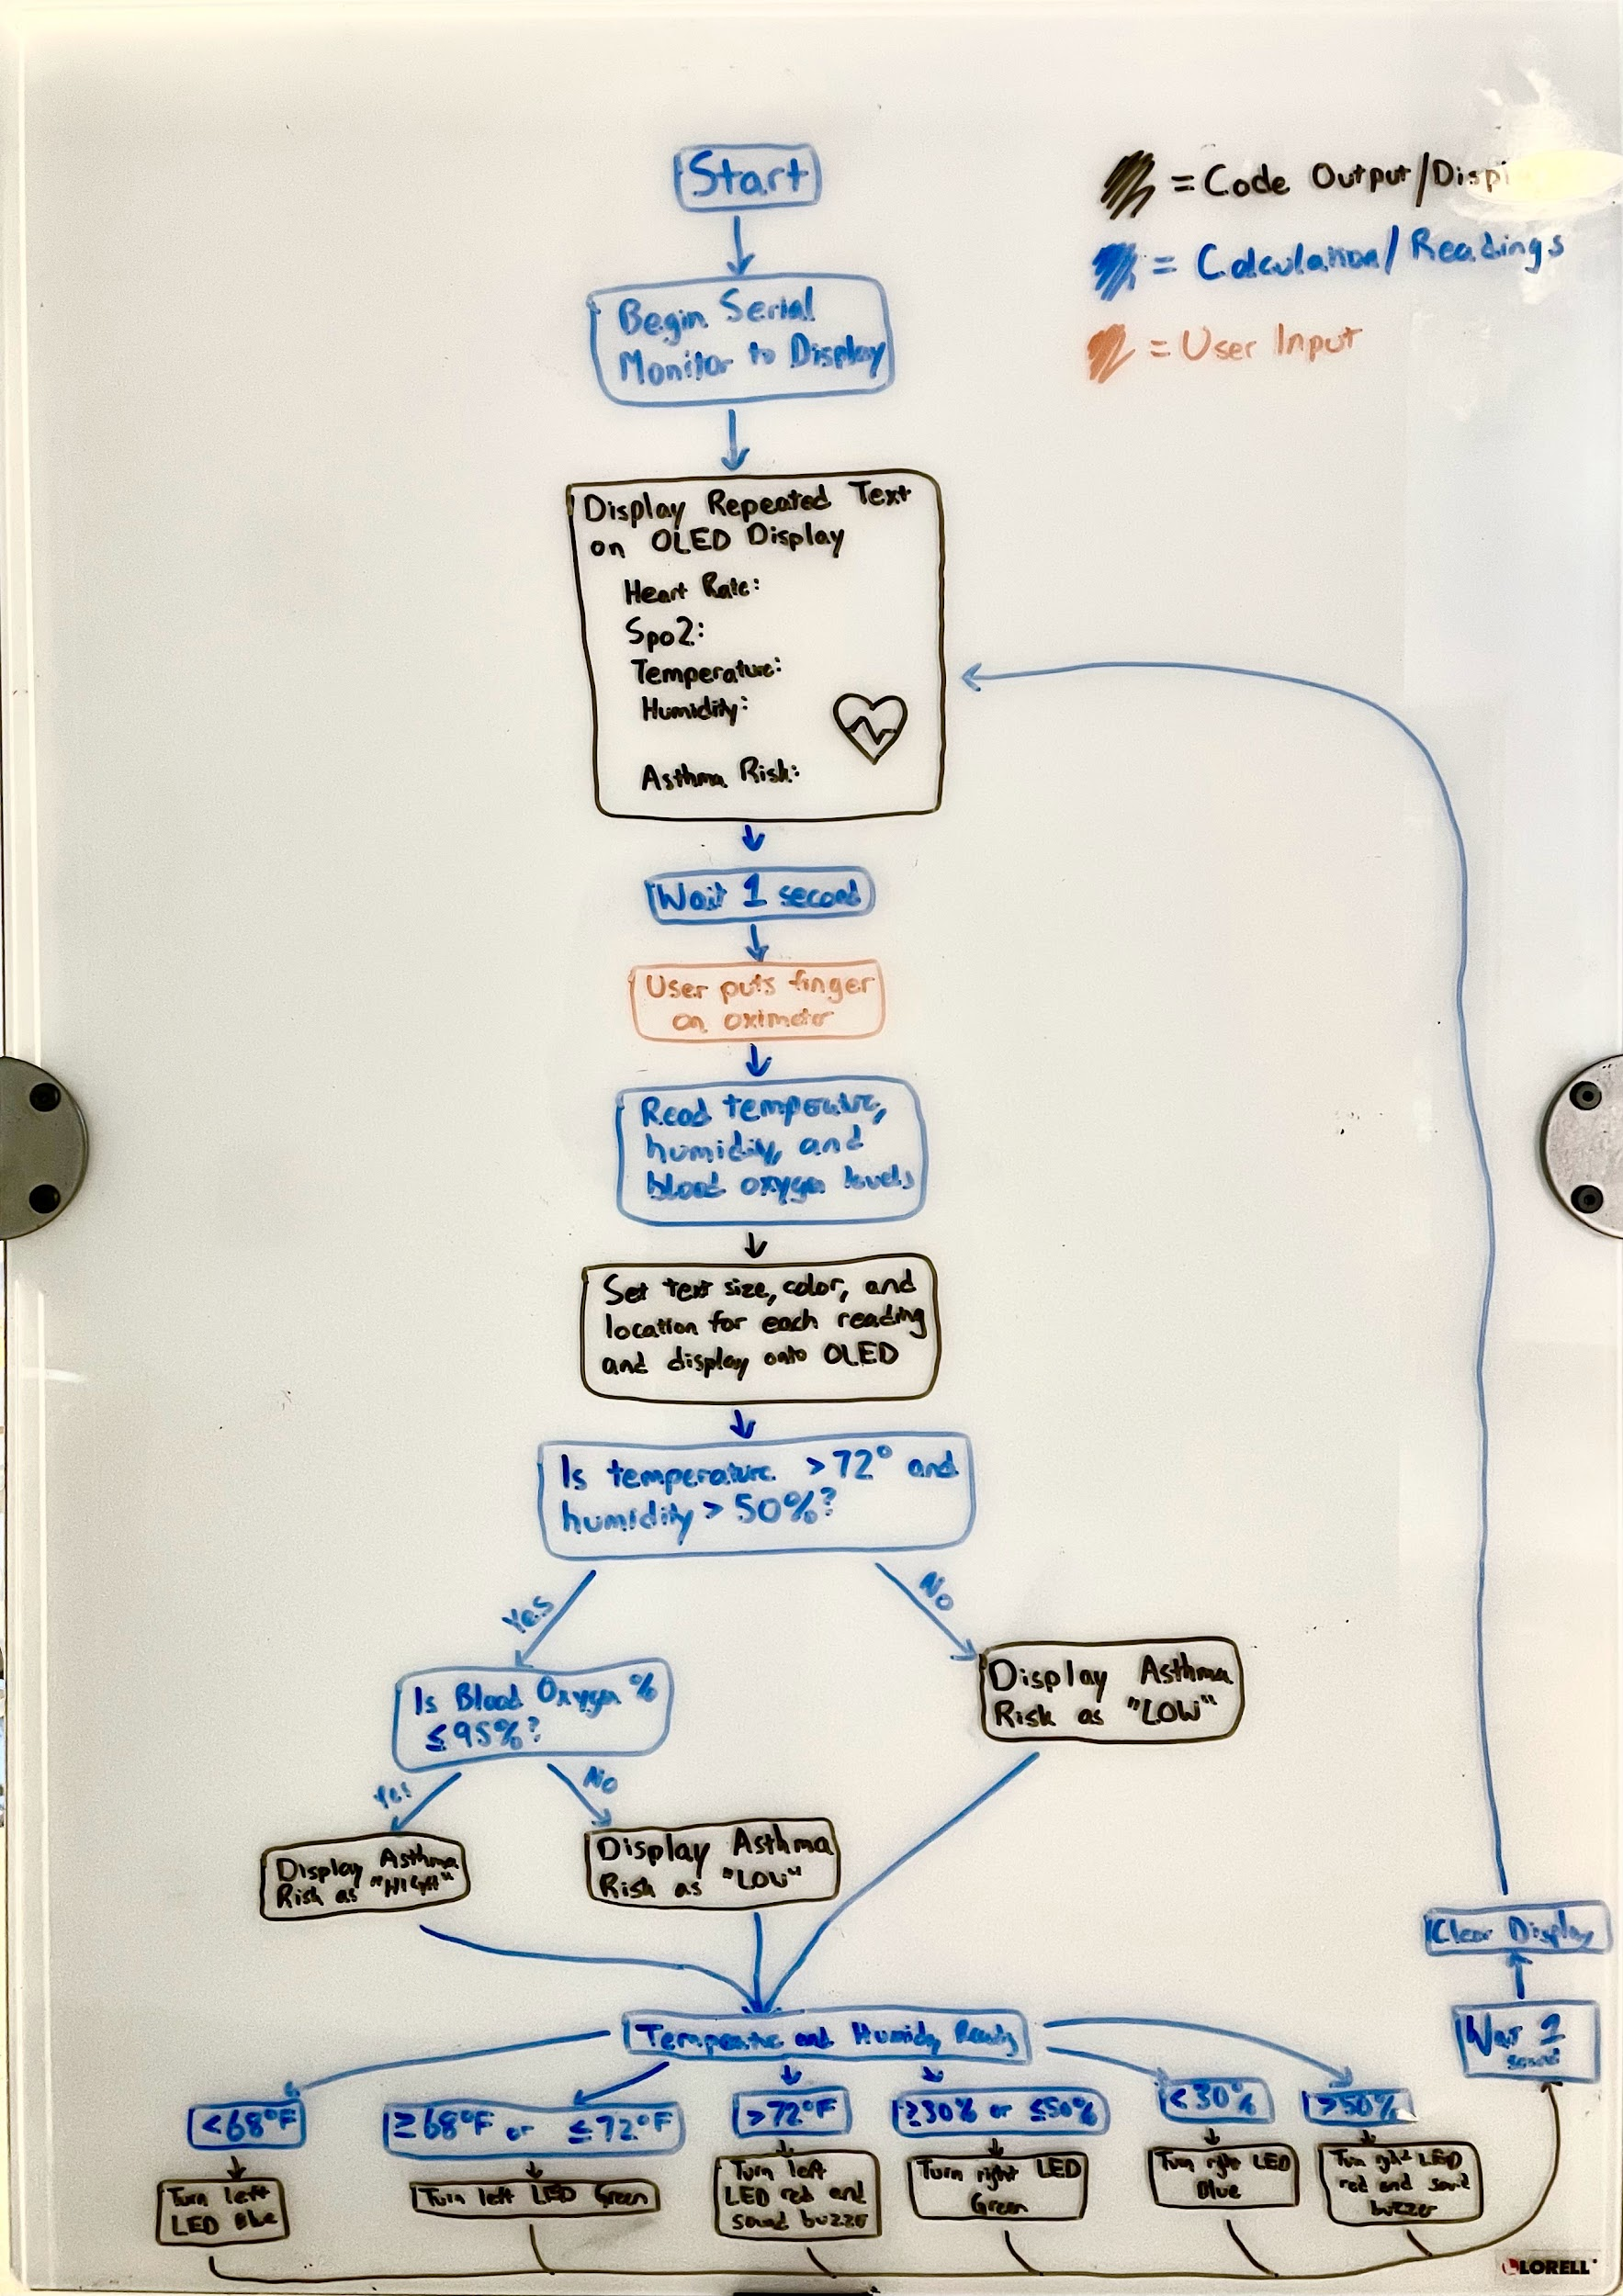 Start
= Code Output/Disp
= Calculation/Readings
= User Input
Begin Serial
Monitor to Display
Display Repeated Text
on OLED Display
Heart Rate:
Spo2:
Temperature:
Humidity:
Asthma Risk:
Wait 1 second
User puts finger
on oximeter
Read temperature,
humidity, and
blood oxygen levels
Set text size, color, and
location for each reading
and display onto OLED
Is temperature >72° and
humidity > 50%?
Yes
No
Is Blood Oxygen %
≤95%?
Display Asthma
Risk as "LOW"
Yes
No
Display Asthma
Risk as "HIGH"
Display Asthma
Risk as "LOW"
Clear Display
Wait 1
second
Temperature and Humidity
<68°F
≥68°F or ≤72°F
>72°F
≥30% or ≤50%
<30%
>50%
Turn left
LED Blue
Turn left LED Green
Turn left
LED red and
sound buzzer
Turn right LED
Green
Turn right LED
Blue
Turn right LED
red and sound
buzzer
LORELL